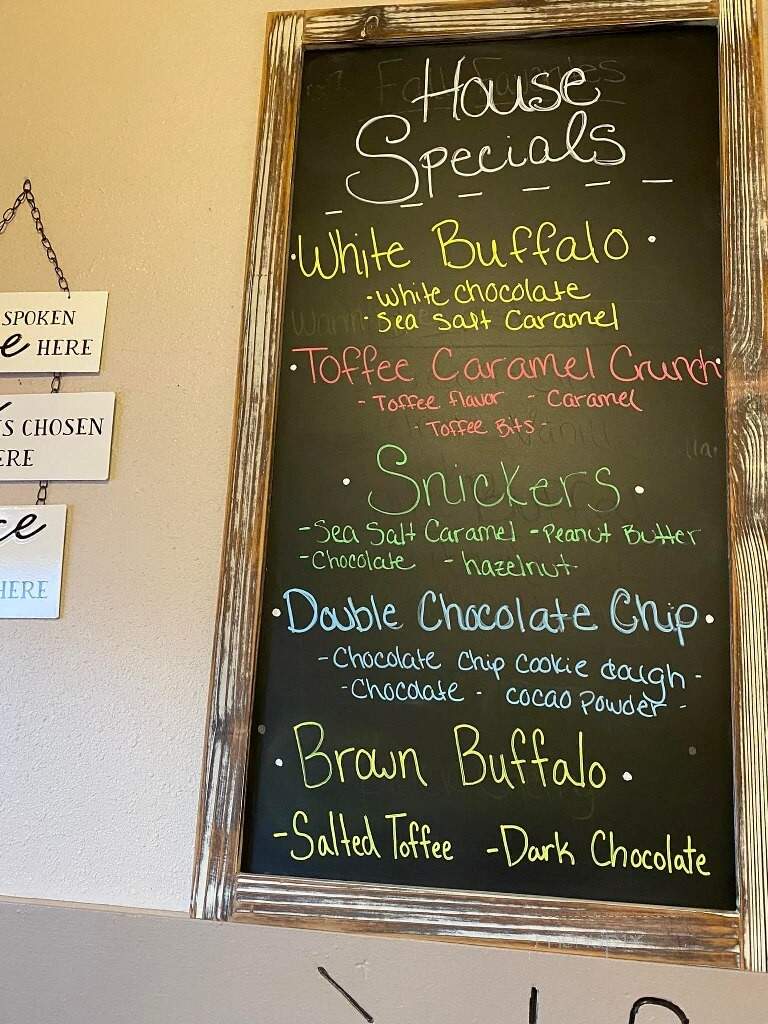 House
Specials
White Buffalo
- White Chocolate
- Sea Salt Caramel
Toffee Caramel Crunch
- Toffee flavor - Caramel
Toffee Bits -
Snickers
- Sea Salt Caramel - Peanut Butter
- Chocolate - hazelnut
Double Chocolate Chip
- Chocolate Chip cookie dough -
- Chocolate - cocao powder -
Brown Buffalo
- Salted Toffee - Dark Chocolate
SPOKEN
HERE
CHOSEN
HERE